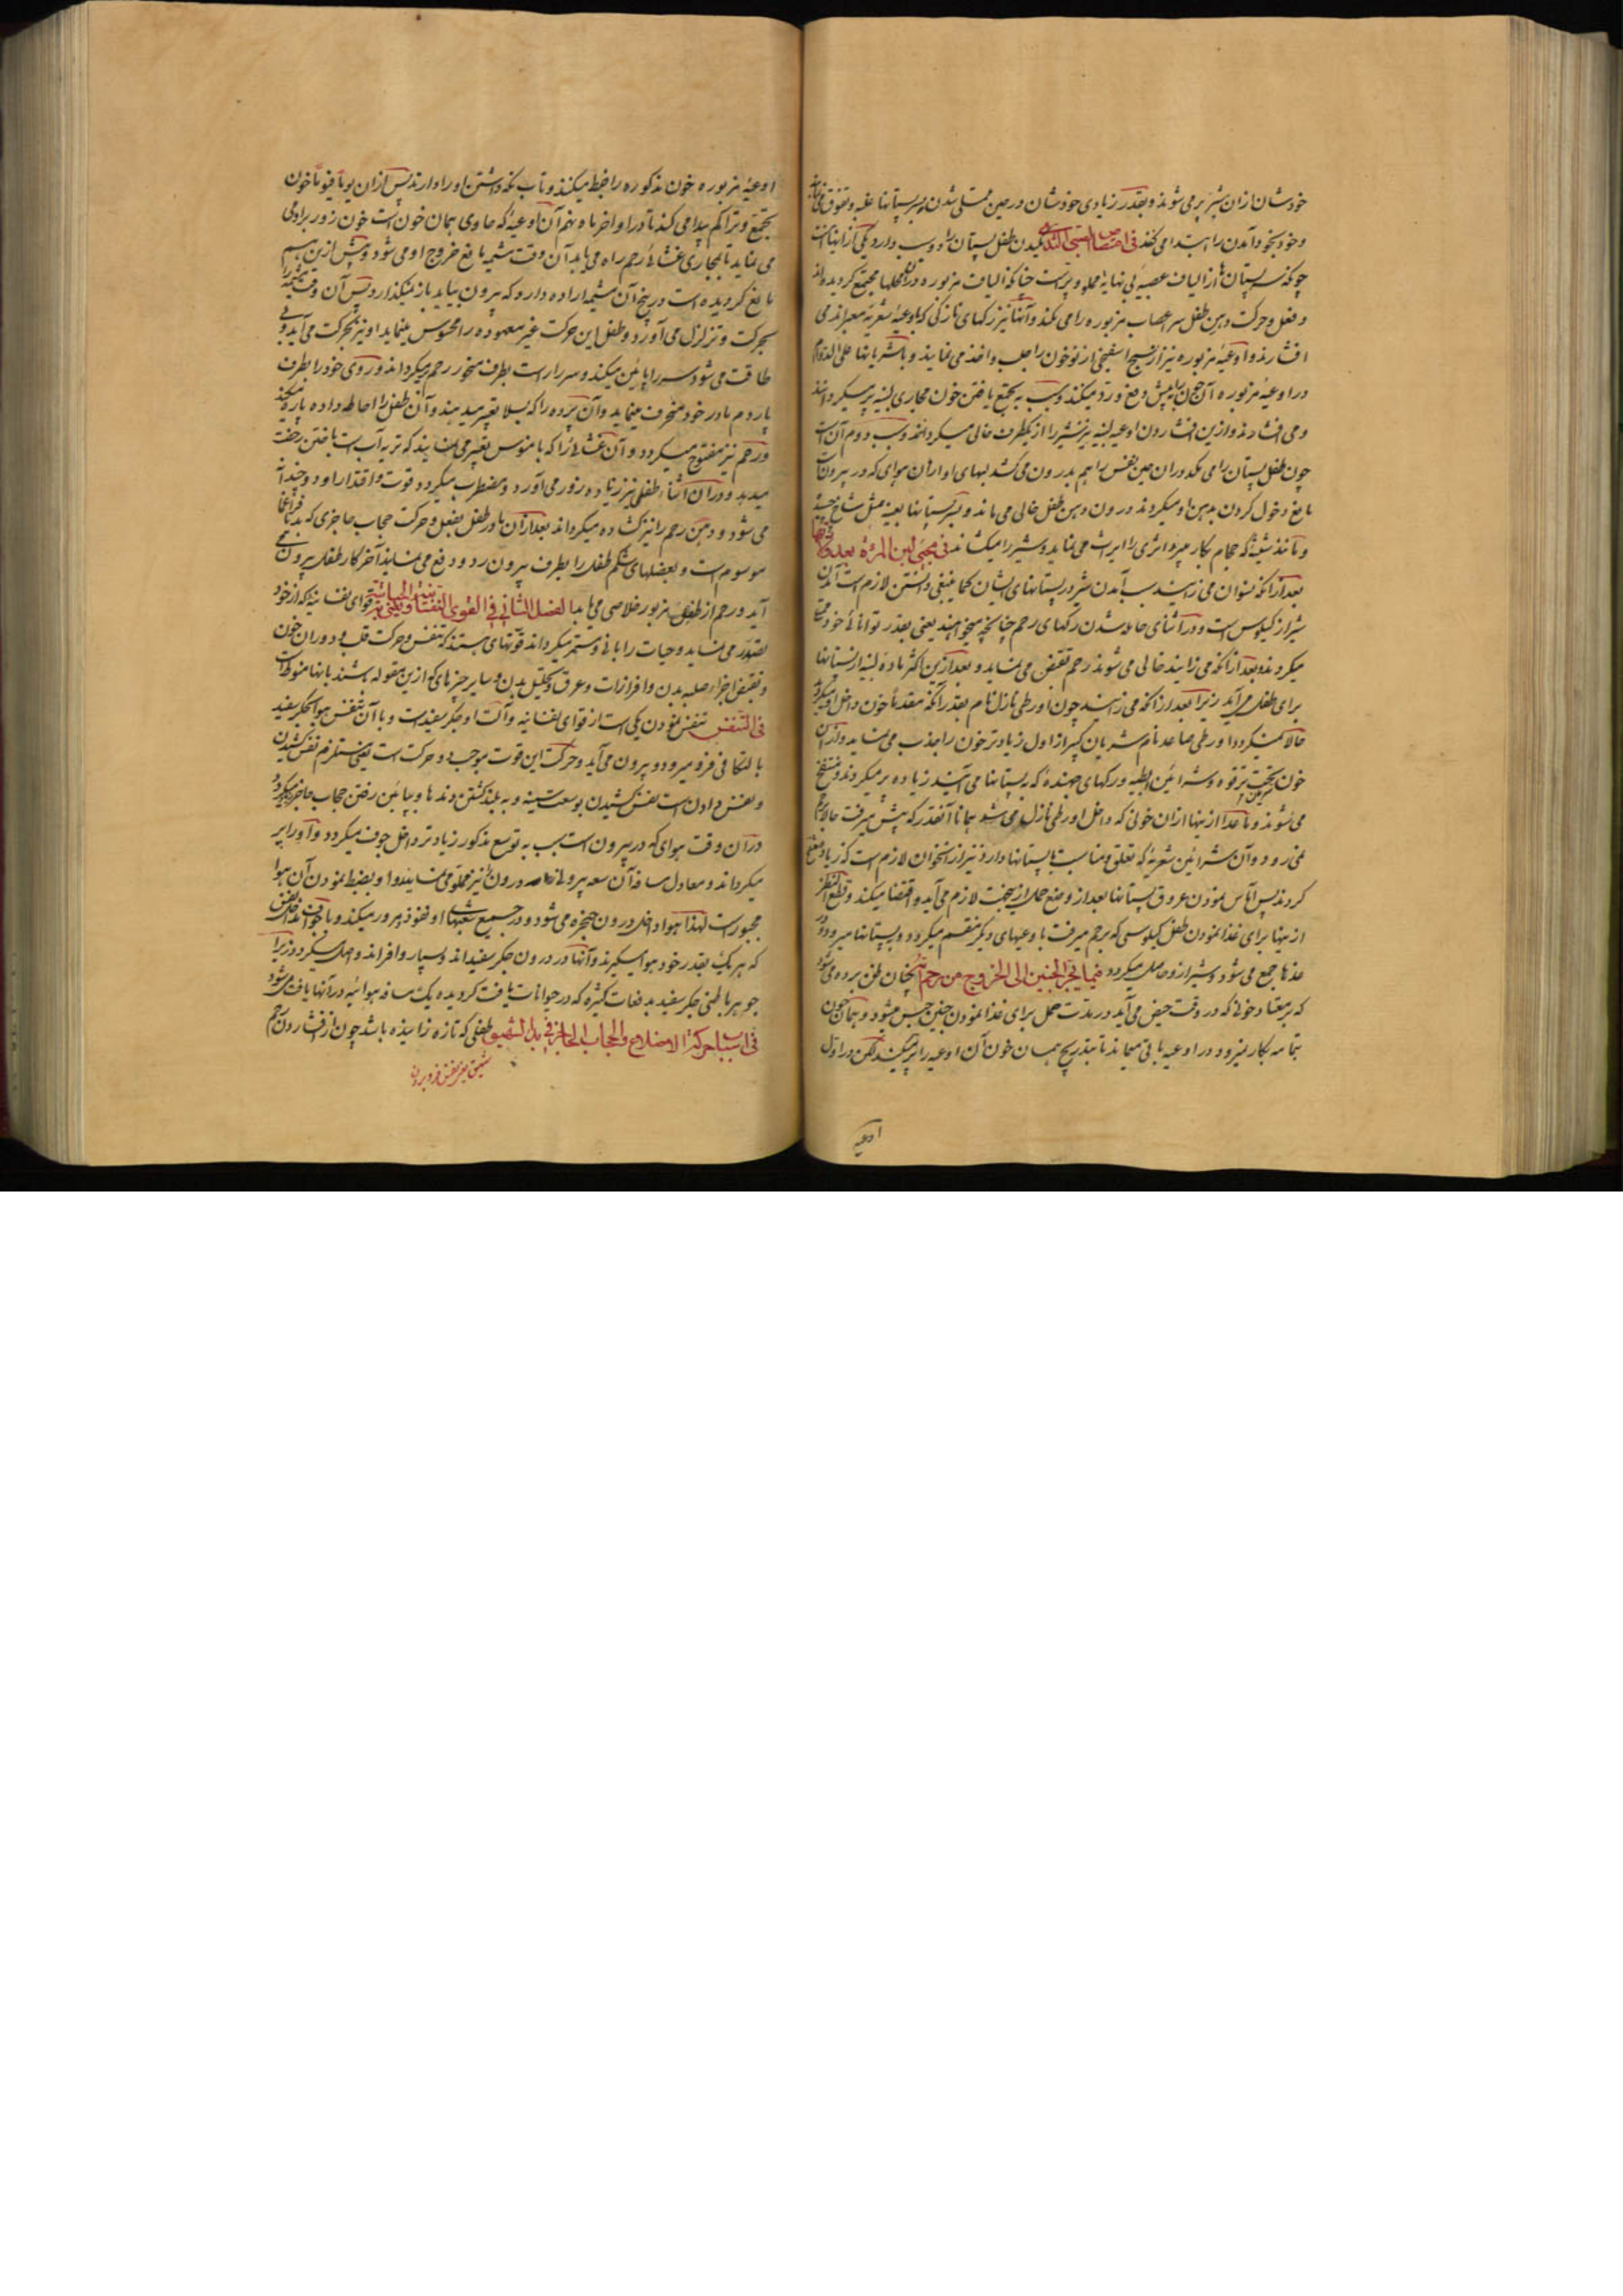 خودشان ازان شیر پر می شوند و بقدر زیادی خودشان در حین ممتلی شدن بر پستانها غلبه و تفوق
و خود بخود آمدن را ابتدا می کند فی امتصاص الصبی الثدی مکیدن طفل پستان را دو سبب دارد یکی ازانها آنست
چونکه سر پستان ها از الیاف عصبیه بی نهایه مملو و پر است چنانکه الیاف مزبوره دران محلها مجتمع گردیده اند
و فعل و حرکت دهن طفل سر اعصاب مزبوره را می مکد و آنها نیز رگهای نازکی که باوعیهٔ شعریه معبر اند می
افشارند و اوعیهٔ مزبوره نیز از نسیج اسفنجی از نو خون را جلب و اخذ می نمایند و با شریانها علی الدوام
در اوعیهٔ مزبوره آن خون را به پیش دفع و رد میکنند و بسبب به مجتمع یافتن خون مجاری لبنیه پر میگرداند
و می افشارند و ازین افشاردن اوعیه لبنیه نیز شیر را از یکطرف خالی میگردانند و سبب دوم آن است
چون طفل پستان را می مکد دران حین نفس را هم بدرون می کشد لبهای او ازان هوای که در بیرونست
مانع دخول کردن بدهن او میگردند درون دهن طفل خالی می ماند و بسر پستانها بعینه مثل شاخ
و مانند شیشهٔ که حجام بکار میبرد اثری را ایراث می نماید و شیر را میکشاند فی مجیئ لبن المرئة بعد
بعد ازانکه نسوان می زایند سبب آمدن شیر در پستانهای ایشان کما ینبغی دانستن لازم است آمدن
شیر از کیلوس است و در اثنای حامله شدن رگهای رحم چنانچه میخواهند یعنی بقدر توانائی خود
میگردند و بعد ازانکه می زایند خالی می شوند رحم تقبض می نماید و بعد ازین اکثر مادهٔ لبنیه از پستانها
برای طفل می آید زیرا بعد ازانکه می زایند چون اورطی نازل نام بقدر آنکه مقدماً خون داخل او میگردید
حالا نمیگردد اورطی صاعد نام شریان کبیر از اول زیادتر خون را جذب می نماید و ازان
خون بتحت ترقوه و شرائین ابطیه و رگهای جهندهٔ که به پستانها می آیند زیاده پر میگردند و منتفخ
می شوند و ما عدا ازینها ازان خونی که داخل اورطی نازل می شد همانا آنقدر که پیش میرفت حالا برحم
نمی رود و آن شرائین شعریه که تعلق و مناسبت با پستانها دارد نیز ازان خون لازم است که زیاد منتفخ
گردند پس آماس نمودن عروق پستانها بعد از وضع حمل ازین جهت لازم می آید و اقتضا میکند و قطع النظر
ازینها برای غذا نمودن طفل کیلوسی که برحم میرفت باوعیهای دیگر منقسم میگردد و به پستانها میرود و در
غدها جمع می شود و شیر ازو حاصل میگردد فیما یجر الجنین الی الخروج من رحم امه چنان ظن برده می شود
که بر معتاد خونی که در وقت حیض می آید در مدت حمل برای غذا نمودن جنین حبس میشود و همان خون
بتمامه بکار نمیرود و در اوعیه باقی میماند تا بتدریج همان خون آن اوعیه را پر میکند لکن در اول
اوعیه
اوعیهٔ مزبوره خون مذکوره را ضبط میکنند و تاب نگه داشتن او را دارند پس ازان یوماً فیوماً خون
تجمع و تراکم پیدا می کند تا در اواخر ماه نهم آن اوعیهٔ که حاوی همان خون است خون زور برو می
می نماید تا بمجاری غشائ رحم راه می یابد آن وقت مشیمه مانع خروج او می شود و پیش ازین هم
مانع گردیده است در پنج آن مشیمه اراده دارد که بیرون بیاید باز نمیگذارد پس آن وقت مشیمه را
بحرکت و تزلزل می آورد و طفل این حرکت غیر معهوده را محسوس مینماید او نیز بحرکت می آید و بی
طاقت می شود سر را پائین میکند و سر راست بطرف منخور رحم میگرداند و روی خود را بطرف
پاردم مادر خود منحرف مینماید و آن پرده را که بسلا تعبیر میدهند و آن طفل را احاطه داده پاره میکند
و رحم نیز مفتوح میگردد و آن غشائ را که بامنوس تعبیر می نمایند که تربه آب است یافتن رخصت
میدهد و دران اثنا طفل نیز زیاده زور می آورد و مضطرب میگردد و قوت و اقتدار او دو چندان
می شود و دهن رحم را نیز گشاده میگرداند بعد ازان مادر طفل بفعل و حرکت حجاب حاجزی که بدیافراغما
موسوم است و بعضلهای شکم طفل را بطرف بیرون رد و دفع می نماید آخر کار طفل بیرون می
آید و رحم از طفل مزبور خلاصی می یابد الفصل الثانی فی القوی النفسانیة الحیاتیة قوای نفسانیهٔ که از خود
تصدر می نماید و حیات را باقی و مستمر میگرداند قوتهای هستند که تنفس و حرکت قلب و دوران خون
و تقبض اجزاء صلبه بدن و افرازات و عرق و تحلل بدن و سایر چیزهای که ازین مقوله باشند بانها منوط است
فی التنفس تنفس نمودن یکی است از قوای نفسانیه و آلت او جگر سفید است و با آن تنفس هوا بجگر سفید
بالتکافی فرو میرود و بیرون می آید و حرکت این قوت موجب دو حرکت است یعنی مستلزم نفس کشیدن
و نفس دادن است نفس کشیدن بوسعت سینه و به بلند گشتن دندها و پائین رفتن حجاب حاجز میگردد
دران وقت هوای که در بیرون است بسبب به توسع مذکور زیادتر داخل جوف میگردد و او را پر
میگرداند و معادل مسافه آن سعه بیرونی درون نیز مملو می نماید و او بضبط نمودن آن هوا
مجبور است لهذا هوا داخل درون حنجره می شود و در جمیع شعبهای او نفوذ و مرور میکند و با جواف
که هر یک بقدر خود هوا میگیرند و آنها در درون جگر سفید اند و بسیار وافر اند واصل میگردد زیرا
جوهر باطنی جگر سفید بدفعات کثیره که در حیوانات یافت گردیده یک مسافه هوائیه در آنها یافت می شود
فی اسباب حرکة الاضلاع والحجاب الحاجز فی بدء الشهیق طفلی که تازه زائیده باشد چون از افشاردن رحم
شهیق یعنی نفس فرو بردن